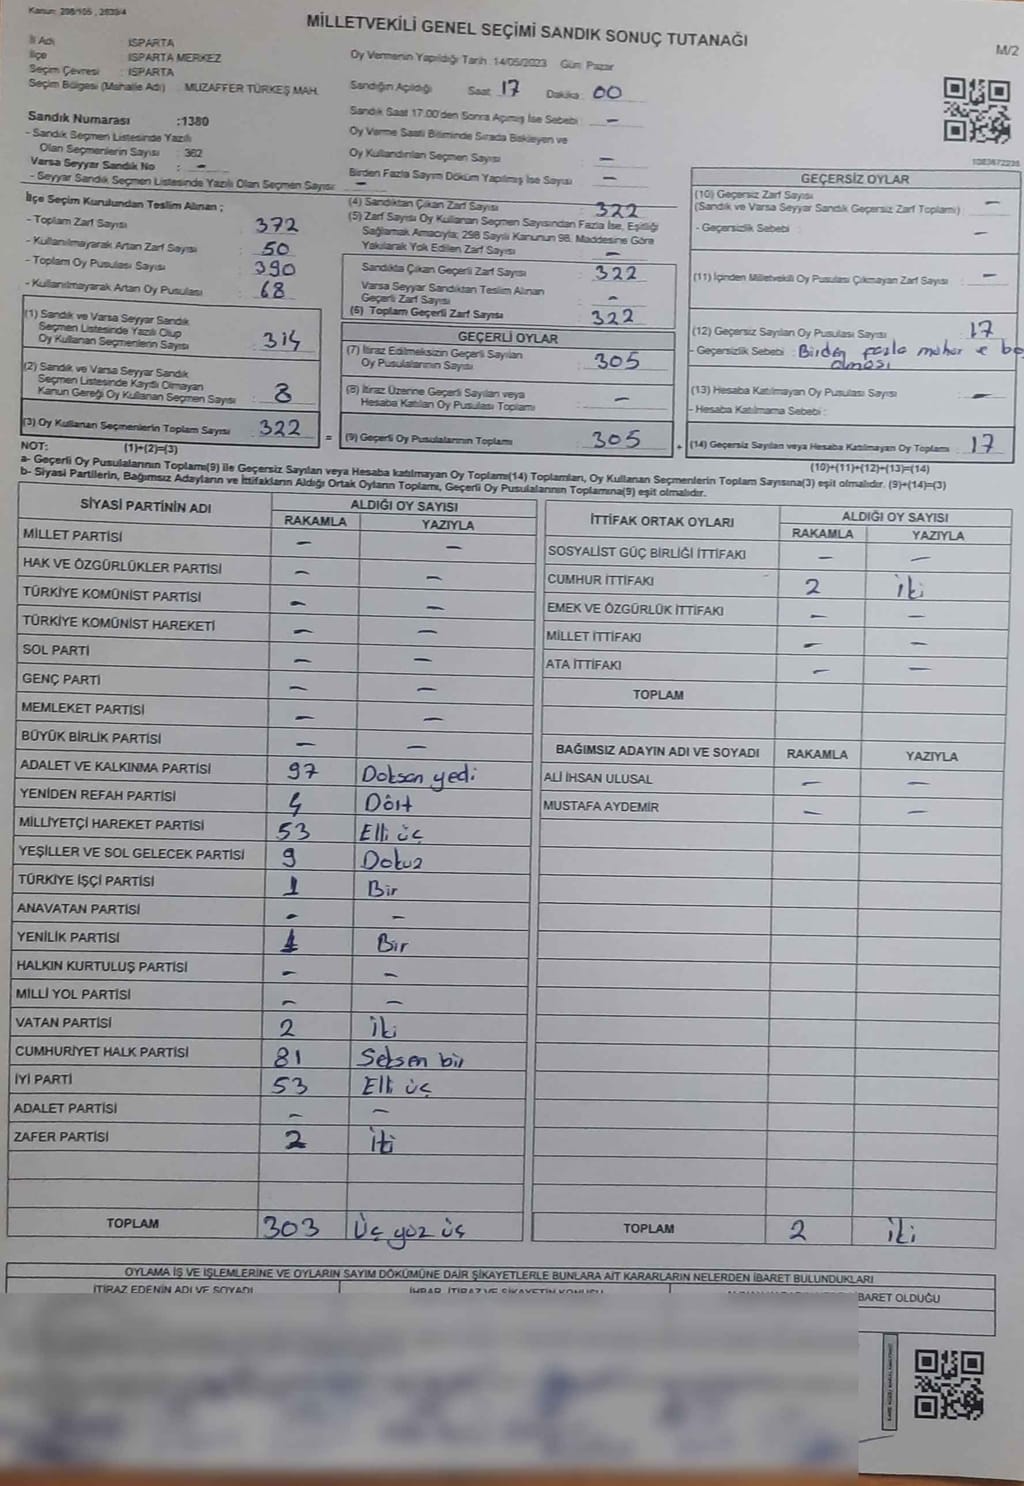 Kanun: 298/105 , 2839/4
MİLLETVEKİLİ GENEL SEÇİMİ SANDIK SONUÇ TUTANAĞI
M/2
İl Adı : ISPARTA
İlçe : ISPARTA MERKEZ
Seçim Çevresi : ISPARTA
Seçim Bölgesi (Mahalle Adı) : MUZAFFER TÜRKEŞ MAH.
Oy Vermenin Yapıldığı Tarih :14/05/2023 Gün: Pazar
Sandığın Açıldığı Saat 17 Dakika : 00
Sandık Saat 17.00'den Sonra Açımış İse Sebebi : —
Oy Verme Saati Bitiminde Sırada Bekleyen ve
Oy Kullandırılan Seçmen Sayısı —
Birden Fazla Sayım Döküm Yapılmış İse Sayısı —
Sandık Numarası :1380
- Sandık Seçmen Listesinde Yazılı
Olan Seçmenlerin Sayısı : 362
Varsa Seyyar Sandık No : —
- Seyyar Sandık Seçmen Listesinde Yazılı Olan Seçmen Sayısı: —
İlçe Seçim Kurulundan Teslim Alınan ;
- Toplam Zarf Sayısı : 372
- Kullanılmayarak Artan Zarf Sayısı : 50
- Toplam Oy Pusulası Sayısı : 390
- Kullanılmayarak Artan Oy Pusulası : 68
(1) Sandık ve Varsa Seyyar Sandık
Seçmen Listesinde Yazılı Olup
Oy Kullanan Seçmenlerin Sayısı : 314
(2) Sandık ve Varsa Seyyar Sandık
Seçmen Listesinde Kayıtlı Olmayan
Kanun Gereği Oy Kullanan Seçmen Sayısı : 8
(3) Oy Kullanan Seçmenlerin Toplam Sayısı 322
(4) Sandıktan Çıkan Zarf Sayısı : 322
(5) Zarf Sayısı Oy Kullanan Seçmen Sayısından Fazla İse, Eşitliği
Sağlamak Amacıyla; 298 Sayılı Kanunun 98. Maddesine Göre
Yakılarak Yok Edilen Zarf Sayısı : —
Sandıkta Çıkan Geçerli Zarf Sayısı : 322
Varsa Seyyar Sandıktan Teslim Alınan
Geçerli Zarf Sayısı : —
(6) Toplam Geçerli Zarf Sayısı : 322
GEÇERLİ OYLAR
(7) İtiraz Edilmeksizin Geçerli Sayılan
Oy Pusulalarının Sayısı : 305
(8) İtiraz Üzerine Geçerli Sayılan veya
Hesaba Katılan Oy Pusulası Toplamı : —
= (9) Geçerli Oy Pusulalarının Toplamı : 305 +
1083672235
GEÇERSİZ OYLAR
(10) Geçersiz Zarf Sayısı
(Sandık ve Varsa Seyyar Sandık Geçersiz Zarf Toplamı) : —
- Geçersizlik Sebebi : —
(11) İçinden Milletvekili Oy Pusulası Çıkmayan Zarf Sayısı : —
(12) Geçersiz Sayılan Oy Pusulası Sayısı : 17
- Geçersizlik Sebebi : Birden fazla mühür
olması
(13) Hesaba Katılmayan Oy Pusulası Sayısı : —
- Hesaba Katılmama Sebebi :
(14) Geçersiz Sayılan veya Hesaba Katılmayan Oy Toplamı : 17
NOT: (1)+(2)=(3)
(10)+(11)+(12)+(13)=(14)
a- Geçerli Oy Pusulalarının Toplamı(9) ile Geçersiz Sayılan veya Hesaba katılmayan Oy Toplamı(14) Toplamları, Oy Kullanan Seçmenlerin Toplam Sayısına(3) eşit olmalıdır. (9)+(14)=(3)
b- Siyasi Partilerin, Bağımsız Adayların ve İttifakların Aldığı Ortak Oyların Toplamı, Geçerli Oy Pusulalarının Toplamına(9) eşit olmalıdır.
SİYASİ PARTİNİN ADI
ALDIĞI OY SAYISI
RAKAMLA YAZIYLA
MİLLET PARTİSİ — —
HAK VE ÖZGÜRLÜKLER PARTİSİ — —
TÜRKİYE KOMÜNİST PARTİSİ — —
TÜRKİYE KOMÜNİST HAREKETİ — —
SOL PARTİ — —
GENÇ PARTİ — —
MEMLEKET PARTİSİ — —
BÜYÜK BİRLİK PARTİSİ — —
ADALET VE KALKINMA PARTİSİ 97 Doksan yedi
YENİDEN REFAH PARTİSİ 4 Dört
MİLLİYETÇİ HAREKET PARTİSİ 53 Elli üç
YEŞİLLER VE SOL GELECEK PARTİSİ 9 Dokuz
TÜRKİYE İŞÇİ PARTİSİ 1 Bir
ANAVATAN PARTİSİ — —
YENİLİK PARTİSİ 1 Bir
HALKIN KURTULUŞ PARTİSİ — —
MİLLİ YOL PARTİSİ — —
VATAN PARTİSİ 2 İki
CUMHURİYET HALK PARTİSİ 81 Seksen bir
İYİ PARTİ 53 Elli üç
ADALET PARTİSİ — —
ZAFER PARTİSİ 2 İki
TOPLAM 303 Üç yüz üç
İTTİFAK ORTAK OYLARI
ALDIĞI OY SAYISI
RAKAMLA YAZIYLA
SOSYALİST GÜÇ BİRLİĞİ İTTİFAKI — —
CUMHUR İTTİFAKI 2 İki
EMEK VE ÖZGÜRLÜK İTTİFAKI — —
MİLLET İTTİFAKI — —
ATA İTTİFAKI — —
TOPLAM
BAĞIMSIZ ADAYIN ADI VE SOYADI RAKAMLA YAZIYLA
ALİ İHSAN ULUSAL — —
MUSTAFA AYDEMİR — —
TOPLAM 2 İki
OYLAMA İŞ VE İŞLEMLERİNE VE OYLARIN SAYIM DÖKÜMÜNE DAİR ŞİKAYETLERLE BUNLARA AİT KARARLARIN NELERDEN İBARET BULUNDUKLARI
İTİRAZ EDENİN ADI VE SOYADI
İHBAR, İTİRAZ VE ŞİKAYETİN KONUSU
BARET OLDUĞU